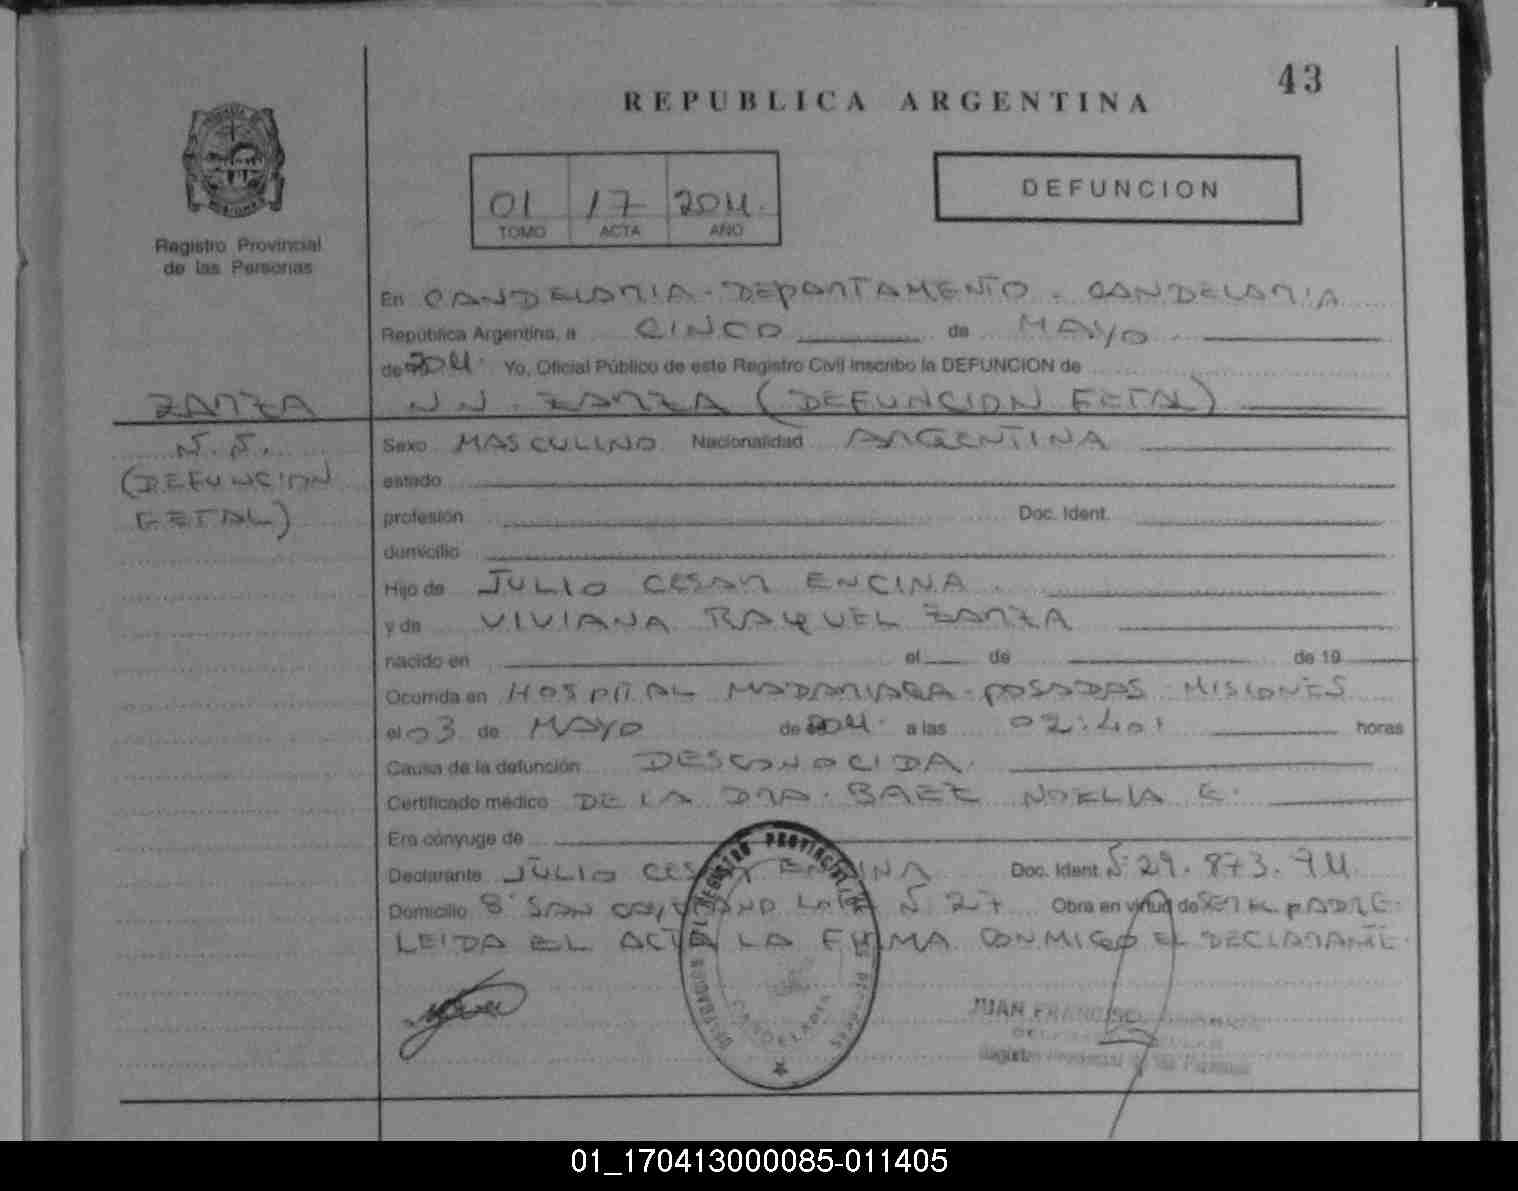 43
REPUBLICA ARGENTINA
01 17 2011.
TOMO ACTA AÑO
DEFUNCION
Registro Provincial
de las Personas
En CANDELARIA - DEPARTAMENTO - CANDELARIA
República Argentina, a CINCO de MAYO
de 2011. Yo, Oficial Público de este Registro Civil inscribo la DEFUNCION de
ZARZA
N.N. ZARZA (DEFUNCION FETAL)
N.N.
(DEFUNCION
FETAL)
Sexo MASCULINO Nacionalidad ARGENTINA
estado
profesión Doc. Ident.
domicilio
Hijo de JULIO CESAR ENCINA
y de VIVIANA RAQUEL ZARZA
nacido en el de de 19
Ocurrida en HOSPITAL MADARIAGA - POSADAS - MISIONES
el 03 de MAYO de 2011. a las 02:40 horas
Causa de la defunción DESCONOCIDA.
Certificado médico DE LA DRA. BAEZ NOELIA E.
Era cónyuge de
Declarante JULIO CESAR ENCINA Doc. Ident. Nº 29.873.911.
Domicilio Bº SAN CAYETANO Nº 27 Obra en virtud de SER EL PADRE.
LEIDA EL ACTA LA FIRMA CONMIGO EL DECLARANTE.
REGISTRO PROVINCIAL DE LAS PERSONAS
CANDELARIA
JUAN FRANCISCO
Registro Provincial de las Personas
01_170413000085-011405